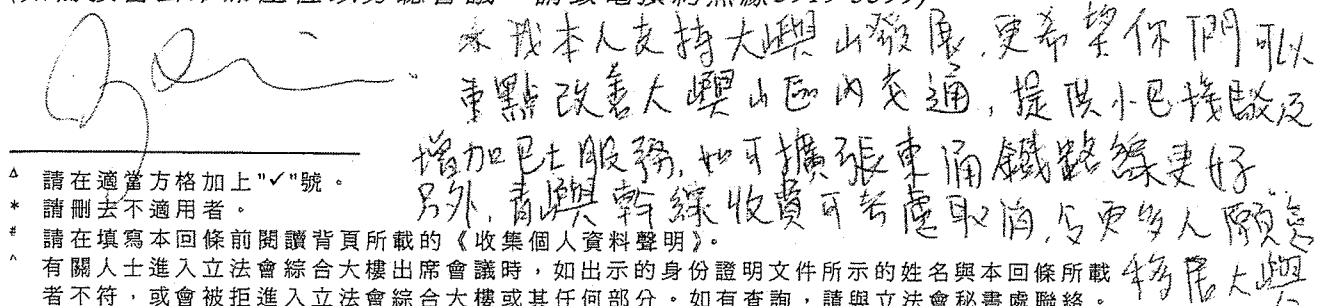 我本人支持大嶼山發展,更希望你們可以
重點改善大嶼山區內交通,提供小巴接駁及
增加巴士服務,如可擴張東涌鐵路線更好
另外,青嶼幹線收費可考慮取消,令更多人願意
移居大嶼
△ 請在適當方格加上"✓"號。
* 請刪去不適用者。
# 請在填寫本回條前閱讀背頁所載的《收集個人資料聲明》。
^ 有關人士進入立法會綜合大樓出席會議時,如出示的身份證明文件所示的姓名與本回條所載
者不符,或會被拒進入立法會綜合大樓或其任何部分。如有查詢,請與立法會秘書處聯絡。